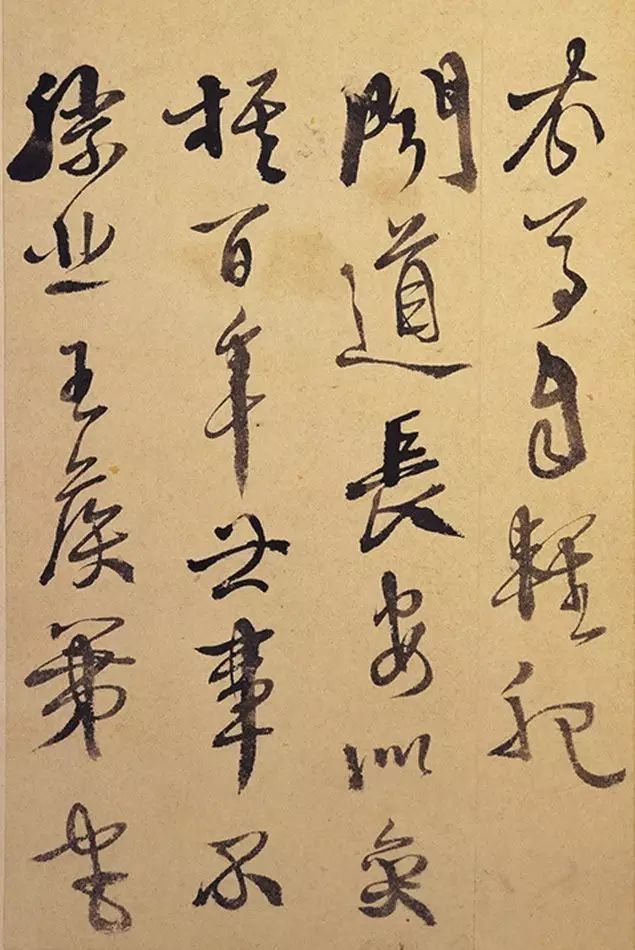 衣馬自輕肥
聞道長安似奕
棋百年世事不
勝悲王侯第